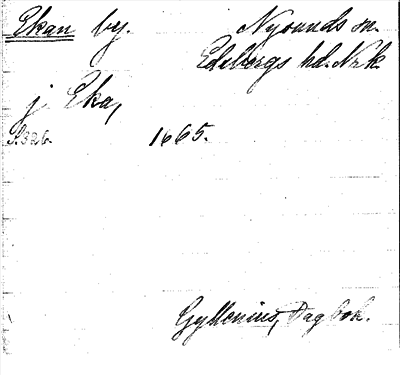 Ekan by. Nysunds sn.
Edsbergs hd. Nrk.
j Eka,
S. 326. 1665.
Gyllenius, Dagbok.